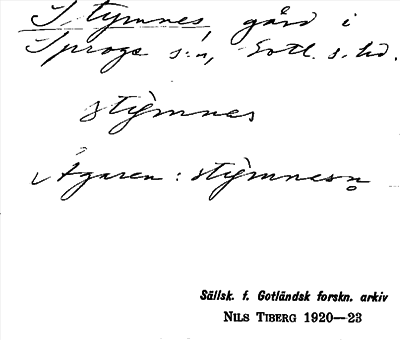 Stymnes, gård i
Sproge s:n, Gotl. s. hd.
stỳmnes
Ägaren : stỳmnesn
Sällsk. f. Gotländsk forskn. arkiv
NILS TIBERG 1920—23